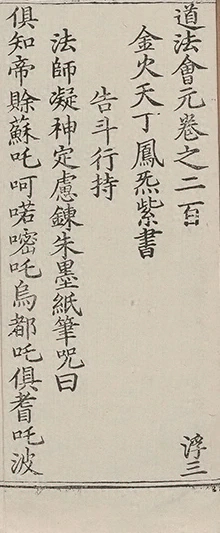 道法會元卷之二百三
浮三
金火天丁鳳炁紫書
告斗行持
法師凝神定慮鍊朱墨紙筆呪曰
俱知帝賖蘇吒呵喏㗭吒烏都吒俱耆吒波